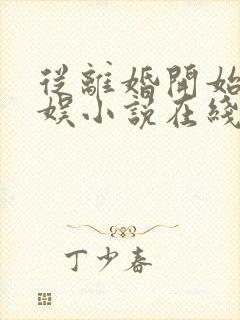 從離婚開始
娛小說在綫
丁少春